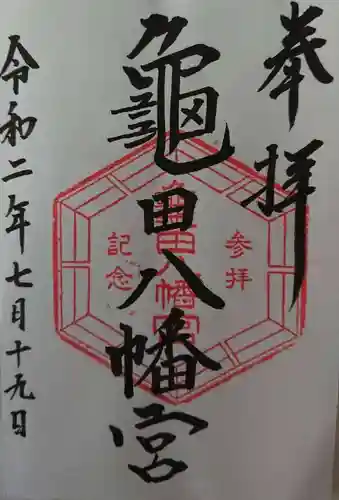 奉拝
龜田八幡宮
令和二年七月十九日
参拝
龜田八幡宮
記念